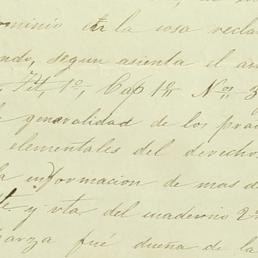 ominio en la cosa recla
ndo, segun asienta el a
Tit. 1º, Cap 1º Nos 3
generalidad de los pra
elementales del derecho
la informacion de mas d
y vta del cuaderno 2º
arza fué dueña de la